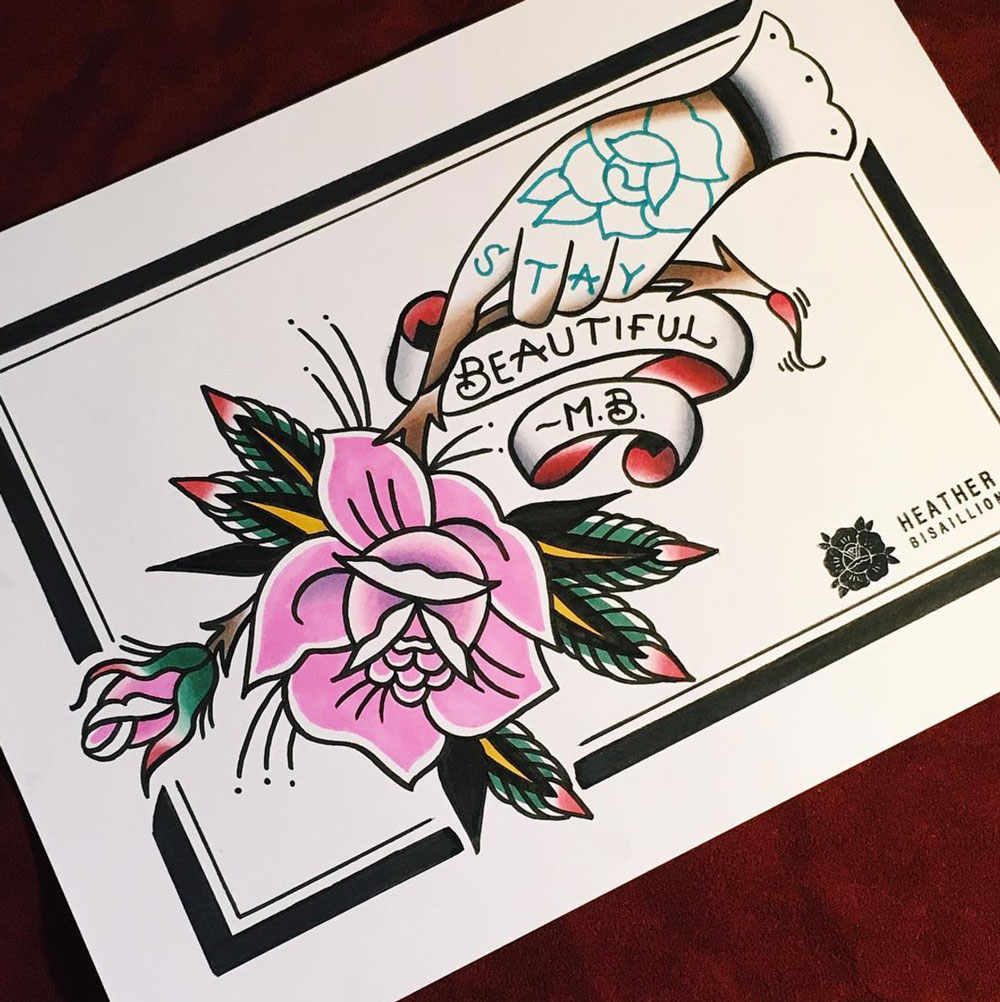 STAY
BEAUTIFUL
~M.B.
HEATHER
BISAILLION